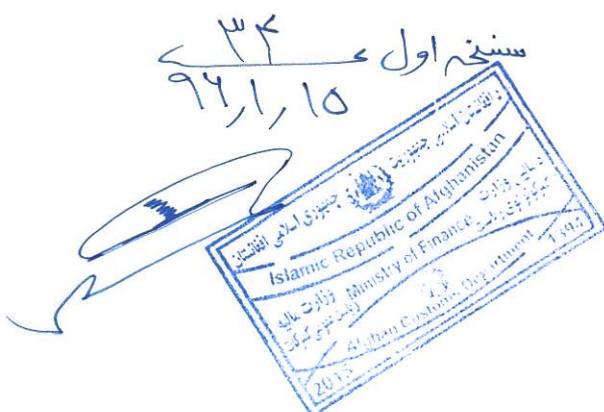 سنخه اول ۳۴
۹۶/۱/۱۵
د افغانستان اسلامی جمهوریت
جمهوری اسلامی افغانستان
Islamic Republic of Afghanistan
د مالیې وزارت
Ministry of Finance
وزارت مالیه
Afghan Customs Department
2013